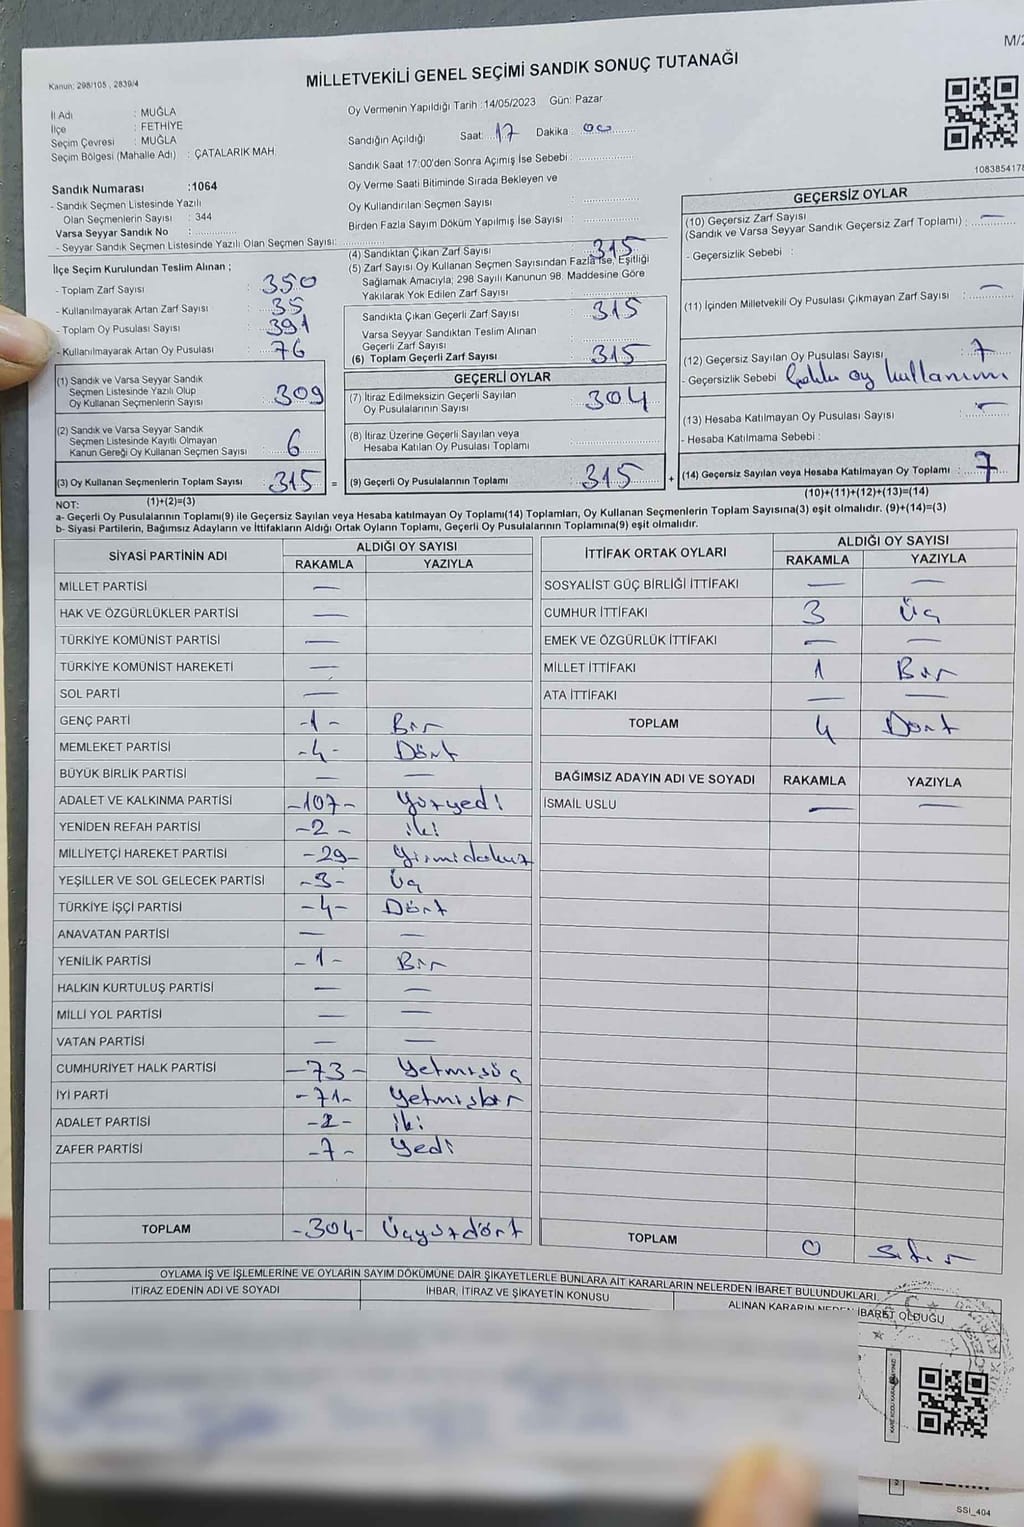 M/2
Kanun: 298/105 , 2839/4
MİLLETVEKİLİ GENEL SEÇİMİ SANDIK SONUÇ TUTANAĞI
İl Adı : MUĞLA
İlçe : FETHİYE
Seçim Çevresi : MUĞLA
Seçim Bölgesi (Mahalle Adı) : ÇATALARIK MAH.
Sandık Numarası :1064
- Sandık Seçmen Listesinde Yazılı
Olan Seçmenlerin Sayısı : 344
Varsa Seyyar Sandık No :
- Seyyar Sandık Seçmen Listesinde Yazılı Olan Seçmen Sayısı:
Oy Vermenin Yapıldığı Tarih :14/05/2023 Gün: Pazar
Sandığın Açıldığı Saat: 17 Dakika : 00
Sandık Saat 17:00'den Sonra Açımış İse Sebebi :
Oy Verme Saati Bitiminde Sırada Bekleyen ve
Oy Kullandırılan Seçmen Sayısı :
Birden Fazla Sayım Döküm Yapılmış İse Sayısı :
1083854178
İlçe Seçim Kurulundan Teslim Alınan ;
- Toplam Zarf Sayısı : 350
- Kullanılmayarak Artan Zarf Sayısı : 35
- Toplam Oy Pusulası Sayısı : 391
- Kullanılmayarak Artan Oy Pusulası : 76
(1) Sandık ve Varsa Seyyar Sandık
Seçmen Listesinde Yazılı Olup
Oy Kullanan Seçmenlerin Sayısı : 309
(2) Sandık ve Varsa Seyyar Sandık
Seçmen Listesinde Kayıtlı Olmayan
Kanun Gereği Oy Kullanan Seçmen Sayısı : 6
(3) Oy Kullanan Seçmenlerin Toplam Sayısı : 315 =
(1)+(2)=(3)
(4) Sandıktan Çıkan Zarf Sayısı : 315
(5) Zarf Sayısı Oy Kullanan Seçmen Sayısından Fazla İse, Eşitliği
Sağlamak Amacıyla; 298 Sayılı Kanunun 98. Maddesine Göre
Yakılarak Yok Edilen Zarf Sayısı :
Sandıkta Çıkan Geçerli Zarf Sayısı : 315
Varsa Seyyar Sandıktan Teslim Alınan
Geçerli Zarf Sayısı :
(6) Toplam Geçerli Zarf Sayısı : 315
GEÇERLİ OYLAR
(7) İtiraz Edilmeksizin Geçerli Sayılan
Oy Pusulalarının Sayısı : 304
(8) İtiraz Üzerine Geçerli Sayılan veya
Hesaba Katılan Oy Pusulası Toplamı :
(9) Geçerli Oy Pusulalarının Toplamı : 315 +
GEÇERSİZ OYLAR
(10) Geçersiz Zarf Sayısı
(Sandık ve Varsa Seyyar Sandık Geçersiz Zarf Toplamı) : —
- Geçersizlik Sebebi :
(11) İçinden Milletvekili Oy Pusulası Çıkmayan Zarf Sayısı : —
(12) Geçersiz Sayılan Oy Pusulası Sayısı : 7
- Geçersizlik Sebebi oy kullanımı
(13) Hesaba Katılmayan Oy Pusulası Sayısı : —
- Hesaba Katılmama Sebebi :
(14) Geçersiz Sayılan veya Hesaba Katılmayan Oy Toplamı : 7
(10)+(11)+(12)+(13)=(14)
NOT:
a- Geçerli Oy Pusulalarının Toplamı(9) ile Geçersiz Sayılan veya Hesaba katılmayan Oy Toplamı(14) Toplamları, Oy Kullanan Seçmenlerin Toplam Sayısına(3) eşit olmalıdır. (9)+(14)=(3)
b- Siyasi Partilerin, Bağımsız Adayların ve İttifakların Aldığı Ortak Oyların Toplamı, Geçerli Oy Pusulalarının Toplamına(9) eşit olmalıdır.
SİYASİ PARTİNİN ADI ALDIĞI OY SAYISI
RAKAMLA YAZIYLA
MİLLET PARTİSİ —
HAK VE ÖZGÜRLÜKLER PARTİSİ —
TÜRKİYE KOMÜNİST PARTİSİ —
TÜRKİYE KOMÜNİST HAREKETİ —
SOL PARTİ —
GENÇ PARTİ -1- Bir
MEMLEKET PARTİSİ -4- Dört
BÜYÜK BİRLİK PARTİSİ — —
ADALET VE KALKINMA PARTİSİ -107- Yüzyedi
YENİDEN REFAH PARTİSİ -2- iki
MİLLİYETÇİ HAREKET PARTİSİ -29- Yirmidokuz
YEŞİLLER VE SOL GELECEK PARTİSİ -3- Üç
TÜRKİYE İŞÇİ PARTİSİ -4- Dört
ANAVATAN PARTİSİ — —
YENİLİK PARTİSİ -1- Bir
HALKIN KURTULUŞ PARTİSİ — —
MİLLİ YOL PARTİSİ — —
VATAN PARTİSİ — —
CUMHURİYET HALK PARTİSİ -73- Yetmişüç
İYİ PARTİ -71- Yetmişbir
ADALET PARTİSİ -2- iki
ZAFER PARTİSİ -7- Yedi
TOPLAM -304- Üçyüzdört
İTTİFAK ORTAK OYLARI ALDIĞI OY SAYISI
RAKAMLA YAZIYLA
SOSYALİST GÜÇ BİRLİĞİ İTTİFAKI — —
CUMHUR İTTİFAKI 3 Üç
EMEK VE ÖZGÜRLÜK İTTİFAKI — —
MİLLET İTTİFAKI 1 Bir
ATA İTTİFAKI — —
TOPLAM 4 Dört
BAĞIMSIZ ADAYIN ADI VE SOYADI RAKAMLA YAZIYLA
İSMAİL USLU — —
TOPLAM 0 Sıfır
OYLAMA İŞ VE İŞLEMLERİNE VE OYLARIN SAYIM DÖKÜMÜNE DAİR ŞİKAYETLERLE BUNLARA AİT KARARLARIN NELERDEN İBARET BULUNDUKLARI.
İTİRAZ EDENİN ADI VE SOYADI İHBAR, İTİRAZ VE ŞİKAYETİN KONUSU ALINAN KARARIN NEDEN İBARET OLDUĞU
SSİ_404